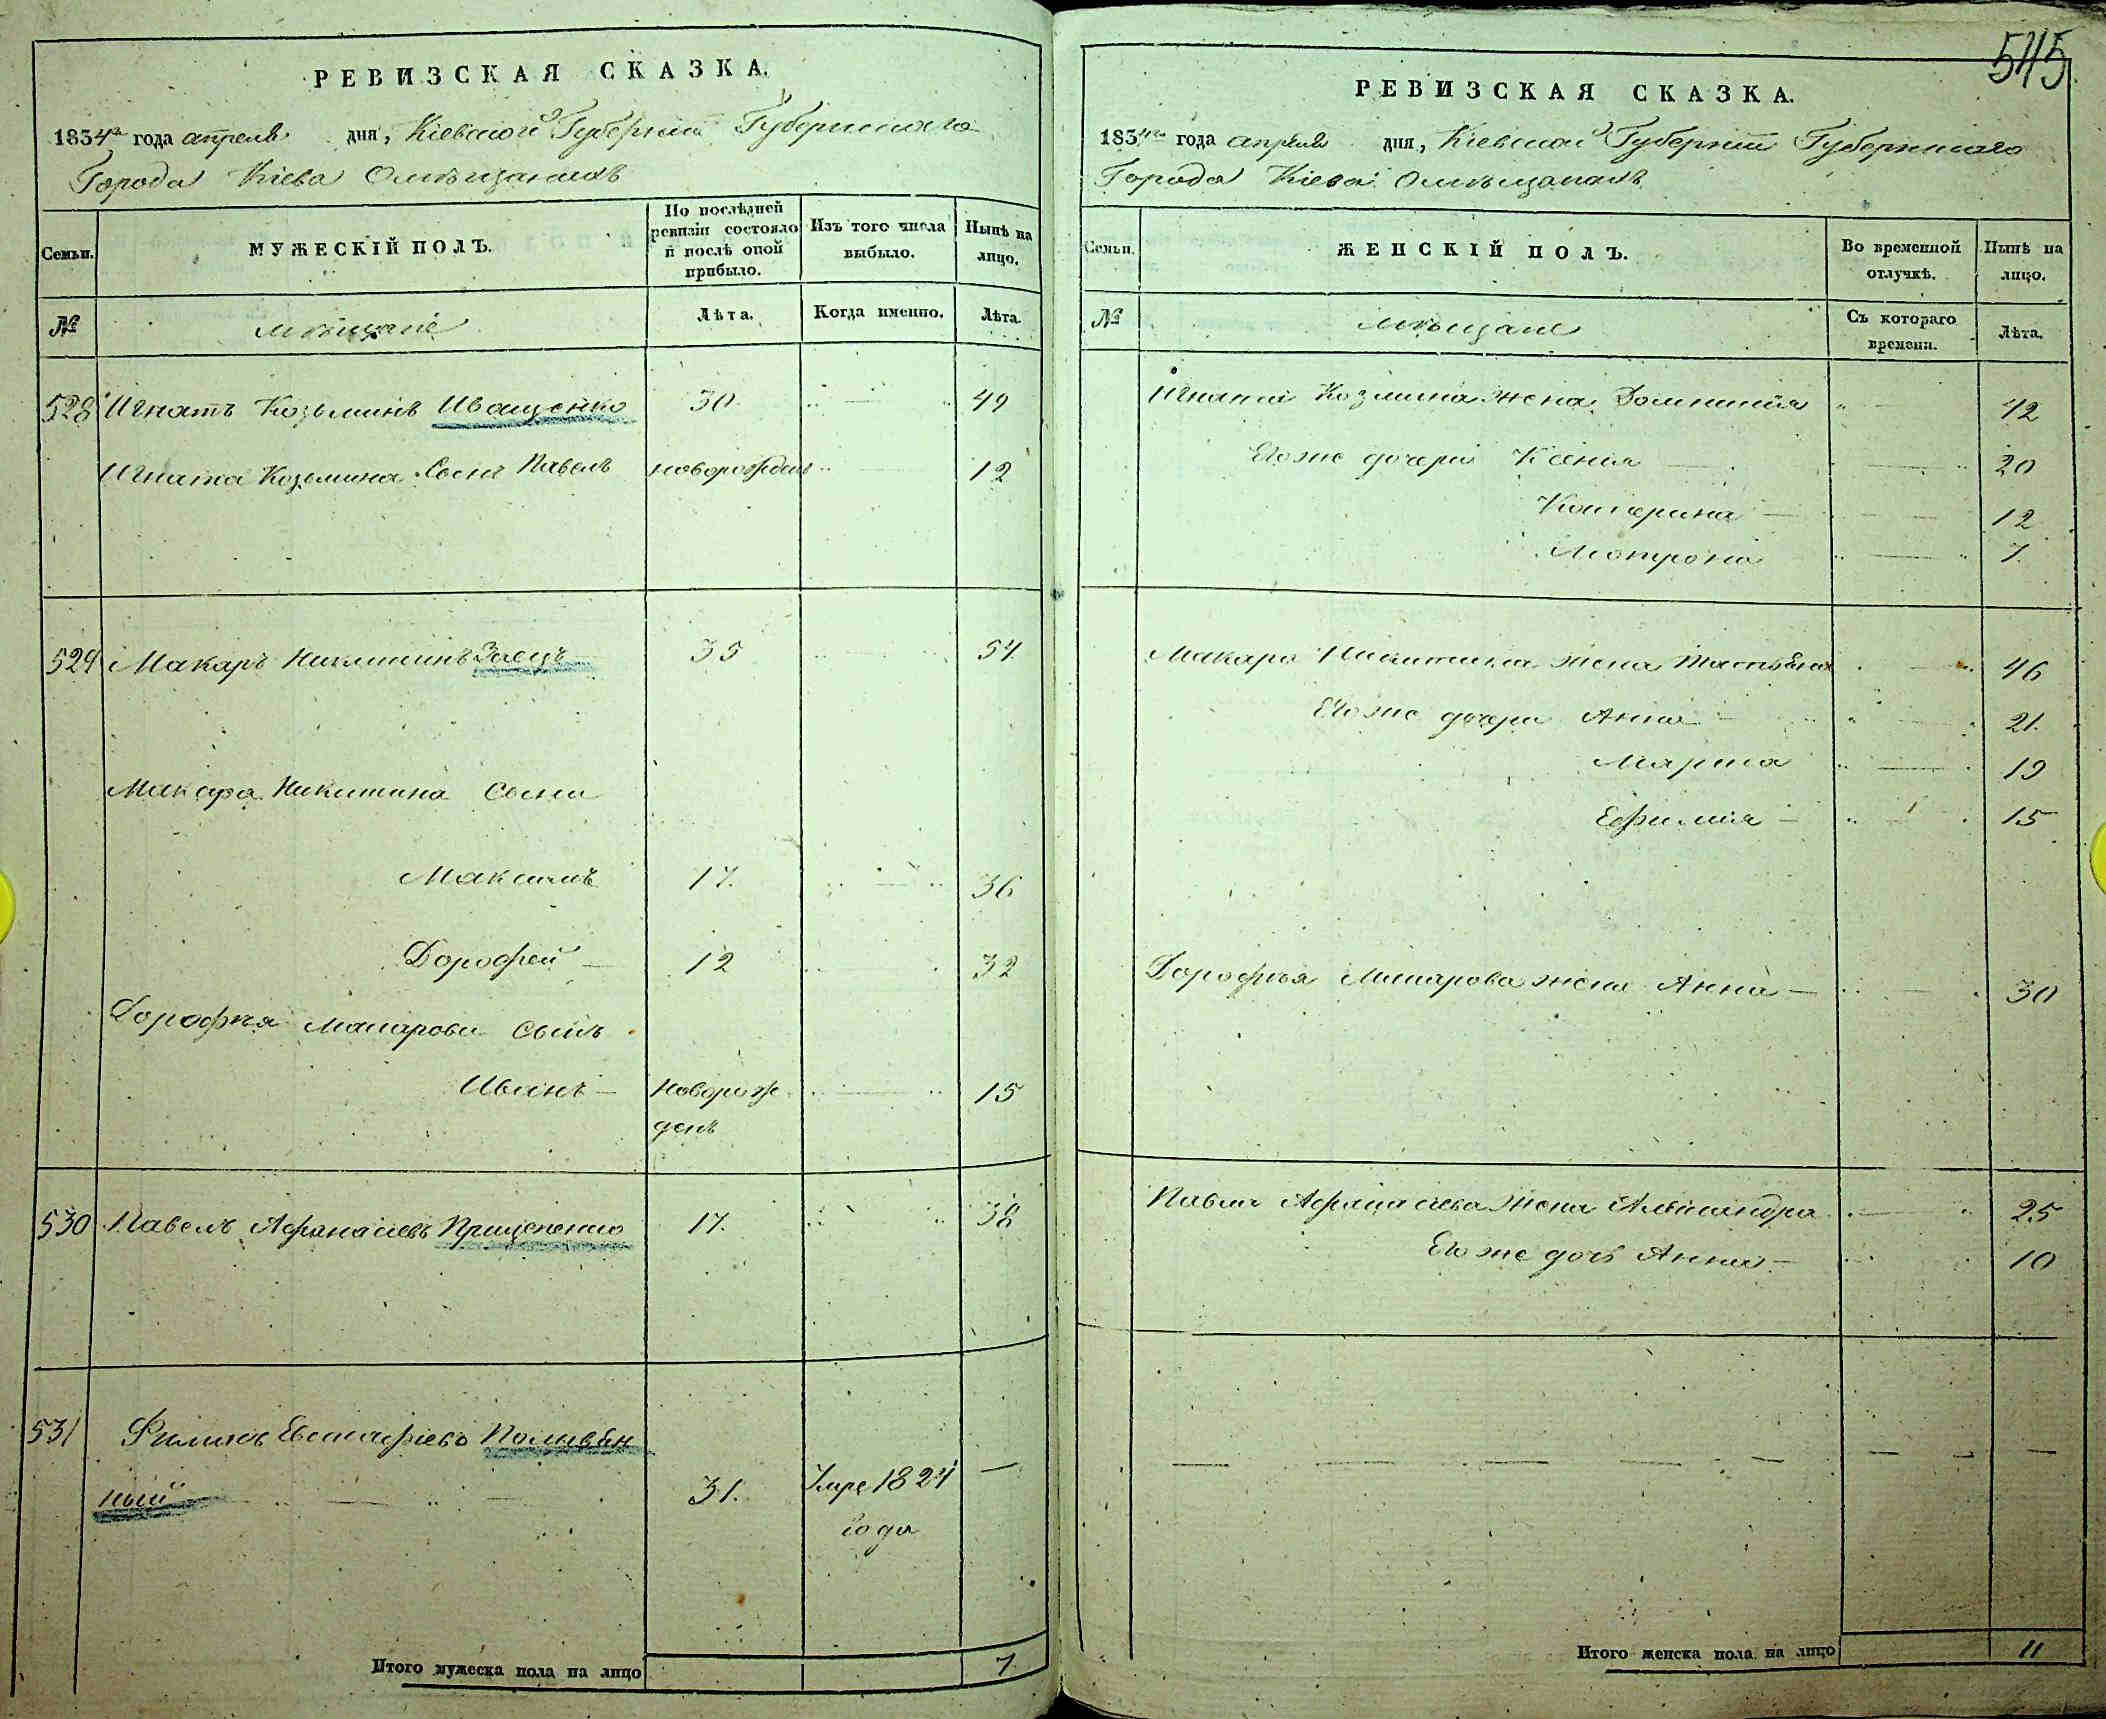 РЕВИЗСКАЯ СКАЗКА.
1834го года апреля дня, Кіевской Губерніи Губернскаго
Города Кіева Омѣщанахъ
Семьи.
МУЖЕСКІЙ ПОЛЪ.
По послѣдней ревизіи состояло и послѣ оной прибыло.
Изъ того числа выбыло.
Нынѣ на лицо.
№
мѣщане
Лѣта.
Когда именно.
Лѣта.
528 Игнатъ Козьминъ Иващенко 30 49
Игната Козьмина Сынъ Павелъ новорожденъ 12
529 Макаръ Никитинъ Заецъ 35 54
Макара Никитина Сыни
Максимъ 17. 36
Дорофей 12 32
Дорофея Макарова Сынъ
Иванъ новорож 15
денъ
530 Павелъ Афанасіевъ Прищепенко 17. 38
531 Филипъ Евстафіевъ Поливян
ный 31. Умре 1824 —
года
Итого мужеска пола на лицо 7
545
РЕВИЗСКАЯ СКАЗКА.
1834го года апреля дня, Кіевской Губерніи Губернскаго
Города Кіева Омѣщанахъ
Семьи.
ЖЕНСКІЙ ПОЛЪ.
Во временной отлучкѣ.
Нынѣ на лицо.
№
мѣщане
Съ котораго времени.
Лѣта.
Игната Козмина жена Домникія 42
Егоже дочери Ксенія 20
Катерина 12
Мотрона 7.
Макара Никитина жена Татьяна 46
Егоже дочери Анна 21.
Марина 19
Ефимія 15
Дорофѣя Макарова жена Анна 30
Павла Афанасіева жена Александра 25
Егоже дочь Анна 10
Итого женска пола на лицо 11